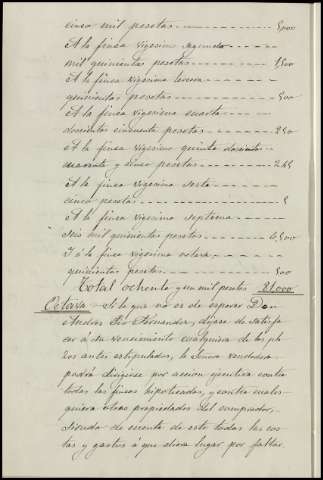 cinco mil pesetas - - - - - - - - - 5,000
A la finca vigesimo segunda - - - - -
mil quinientas pesetas - - - - - - 1,500
A la finca vigesimo tercera - - - - -
quinientas pesetas - - - - - - - 500
A la finca vigesimo cuarta - - - - -
doscientas cincuenta pesetas - - - - 250
A la finca vigesimo quinta doscientas
cuarenta y cinco pesetas - - - - - 245
A la finca vigesimo sexta - - - - -
cinco pesetas - - - - - - - - - 5
A la finca vigesimo septima - - - -
seis mil quinientas pesetas - - - - 6,500
Y á la finca vigesimo octava - - - -
quinientas pesetas - - - - - - - 500
Total ochenta y un mil pesetas 81,000
Octava - Si lo que no es de esperar Don
Andrés Fernandez, dejase de satisfa
cer á su vencimiento cualquiera de los pla
zos antes estipulados, la Señora vendedora
podrá dirigirse por acción ejecutiva contra
todas las fincas hipotecadas, y contra cuales-
quiera otras propiedades del comprador,
siendo de cuenta de este todas las cos
tas y gastos á que diera lugar por faltar